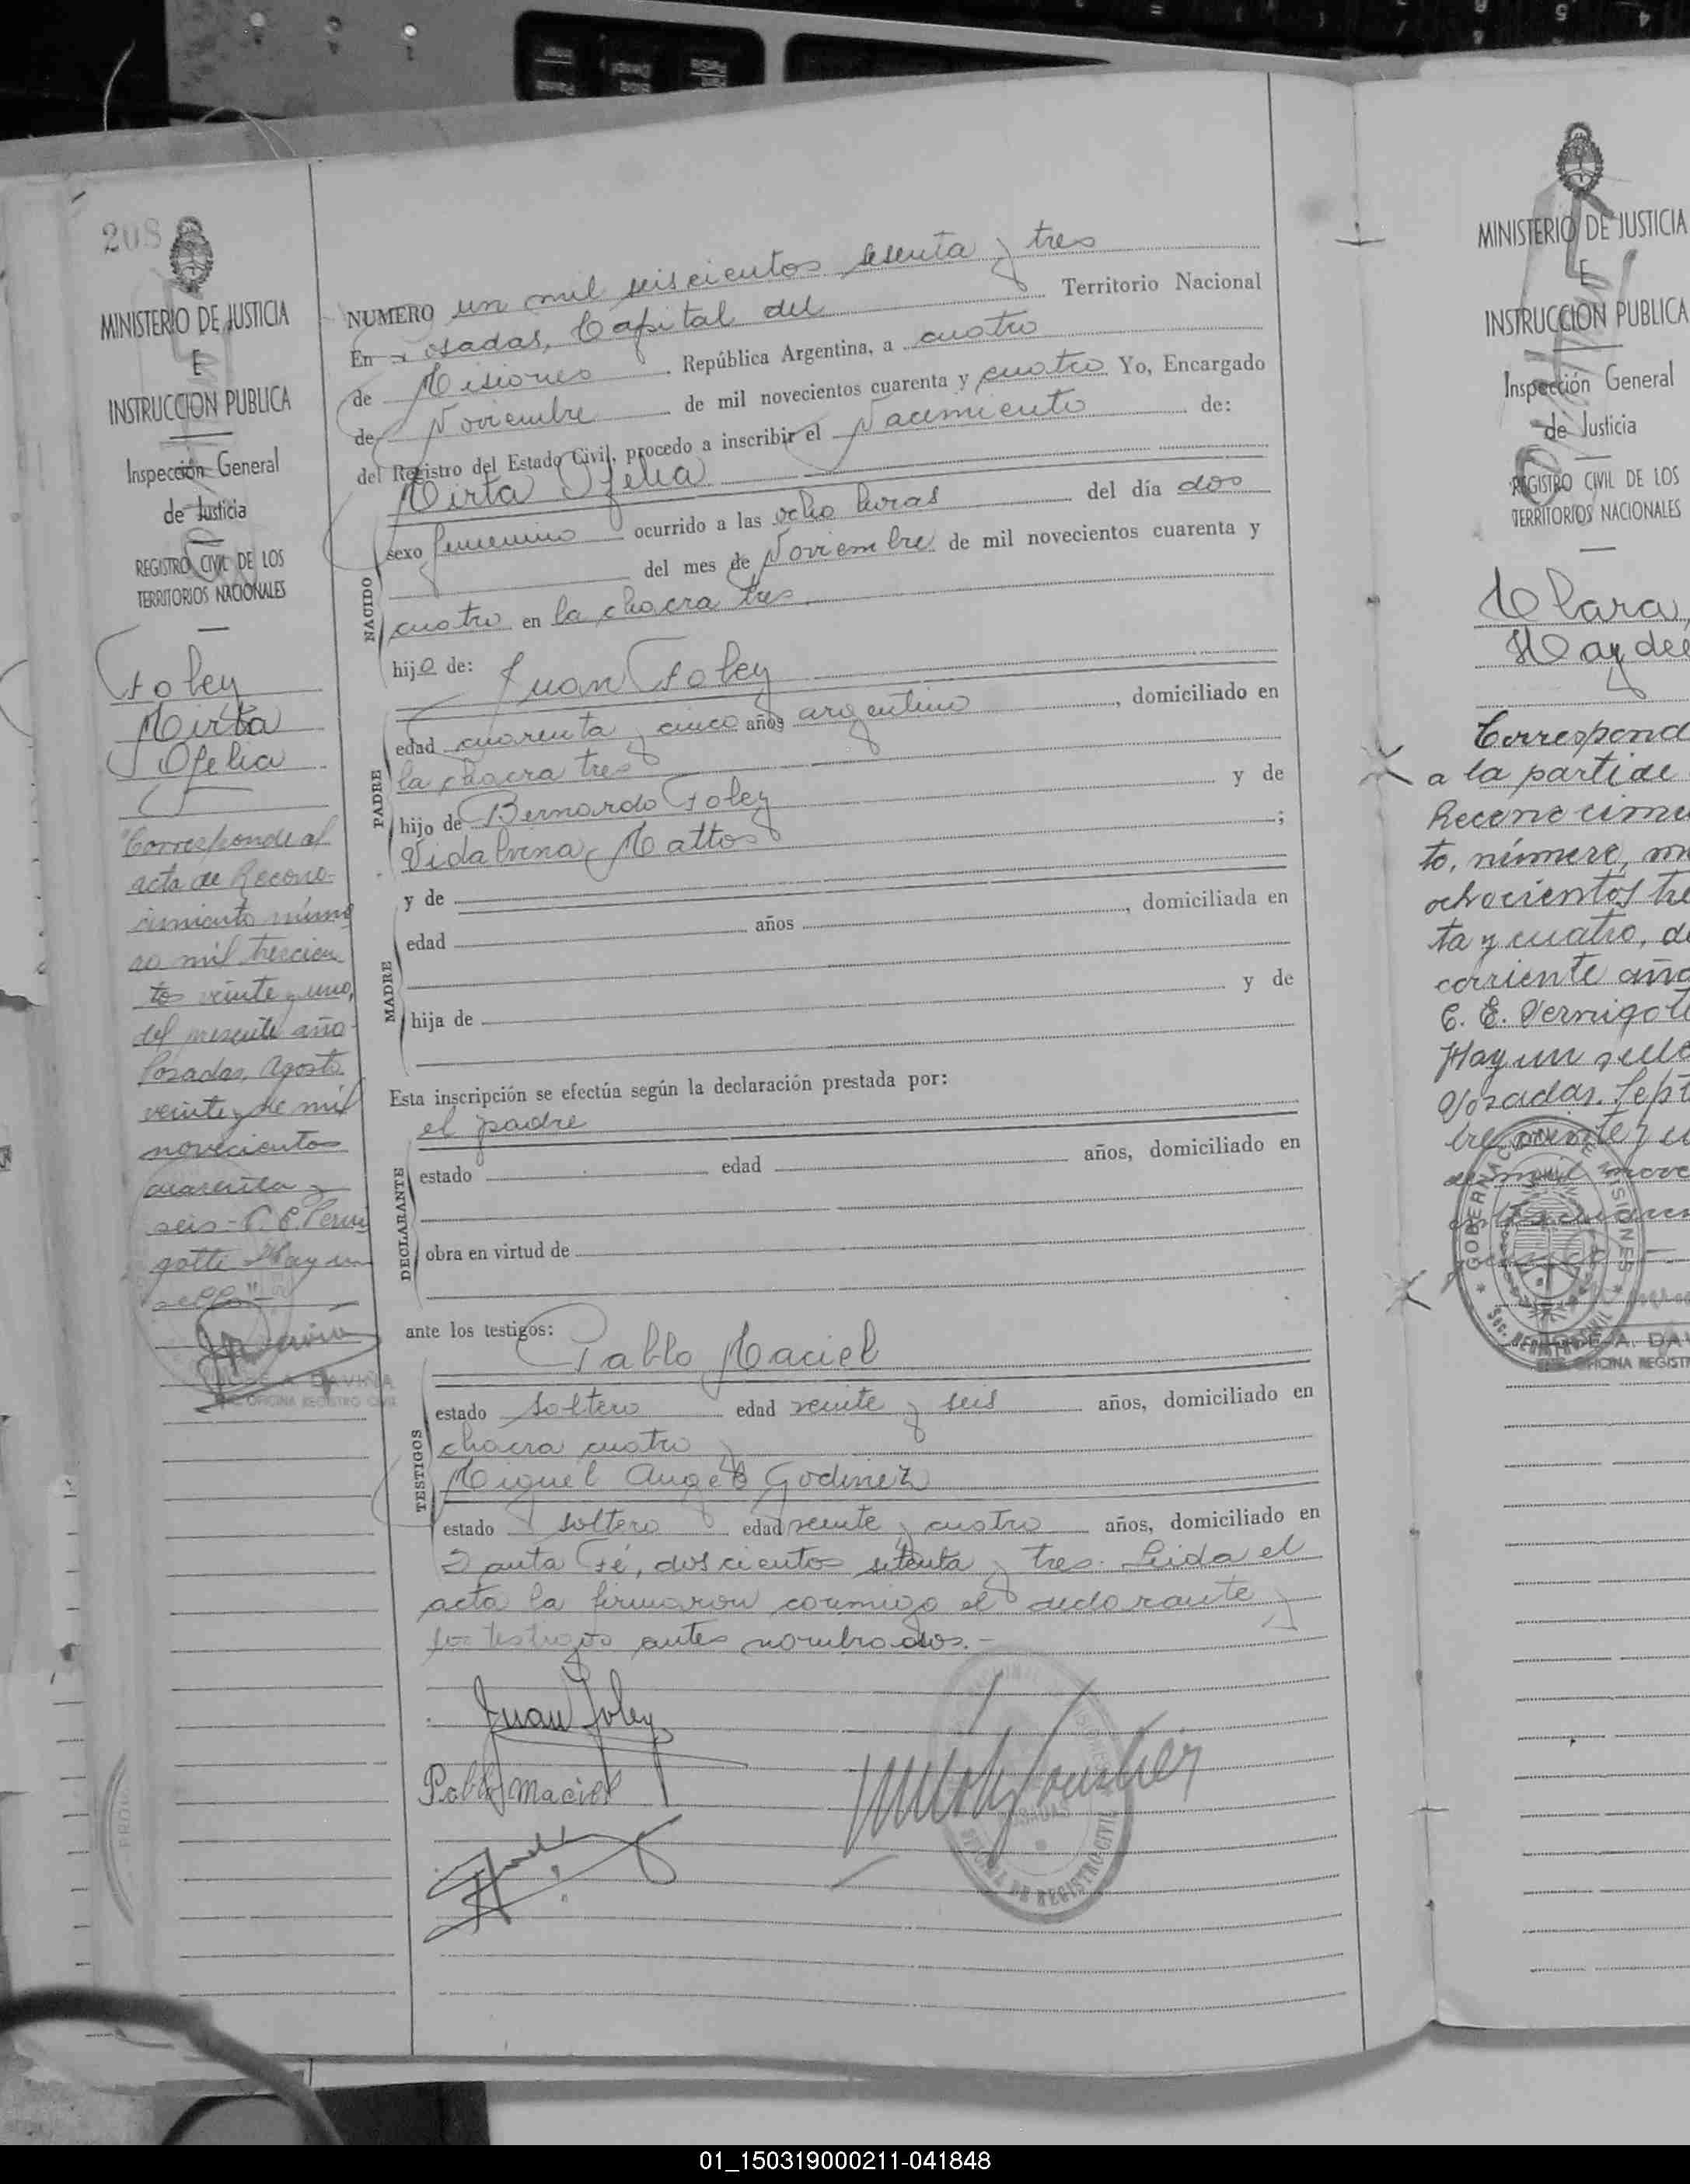 208
MINISTERIO DE JUSTICIA
E
INSTRUCCION PUBLICA
Inspección General
de Justicia
REGISTRO CIVIL DE LOS
TERRITORIOS NACIONALES
Foley
Mirta
Ofelia
"Corresponde al
acta de Recono-
cimiento núme
ro mil trescien
tos veinte y uno,
del presente año-
Posadas, Agosto
veinte y de mil
novecientos
cuarenta y
seis - C. E. Perni
gotti Hay un
sello"
OFICINA REGISTRO CIVIL
NUMERO un mil seiscientos sesenta y tres
En Posadas, Capital del Territorio Nacional
de Misiones República Argentina, a cuatro
de Noviembre de mil novecientos cuarenta y cuatro Yo, Encargado
del Registro del Estado Civil, procedo a inscribir el Nacimiento de:
Mirta Ofelia
NACIDO
sexo femenino ocurrido a las ocho horas del día dos
del mes de Noviembre de mil novecientos cuarenta y
cuatro en la chacra tres
hija de: Juan Foley
PADRE
edad cuarenta y cinco años argentino, domiciliado en
la chacra tres
hijo de Bernardo Foley y de
Vidalvina Mattos;
y de
MADRE
edad años, domiciliada en
hija de y de
Esta inscripción se efectúa según la declaración prestada por:
el padre
DECLARANTE
estado edad años, domiciliado en
obra en virtud de
ante los testigos: Pablo Maciel
TESTIGOS
estado soltero edad veinte y seis años, domiciliado en
chacra cuatro y
Miguel Angel Godinez
estado soltero edad veinte y cuatro años, domiciliado en
Santa Fé, doscientos setenta y tres. Leida el
acta la firmaron conmigo el declarante y
los testigos antes nombrados.-
Juan Foley
Pablo Maciel
OFICINA DE REGISTRO CIVIL
MINISTERIO DE JUSTICIA
E
INSTRUCCION PUBLICA
Inspección General
de Justicia
REGISTRO CIVIL DE LOS
TERRITORIOS NACIONALES
Clara,
Haydee
Correspond
a la partida
Reconocimi
to, número, mi
ochocientos tre
ta y cuatro, de
corriente año
C. E. Pernigott
Hay un sello
Posadas. Sept
bre veinte y
de mil nove
GOBERNACION DE MISIONES
OFICINA REGIST
01_150319000211-041848